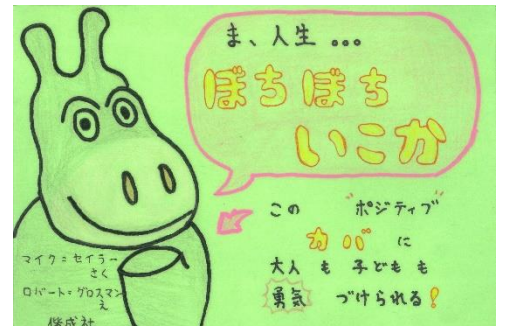 ま、人生…
ぼちぼち
いこか
この "ポジティブ"
カバ に
大人 も 子ども も
勇気 づけられる!
マイク=セイラー
さく
ロバート=グロスマン
え
偕成社